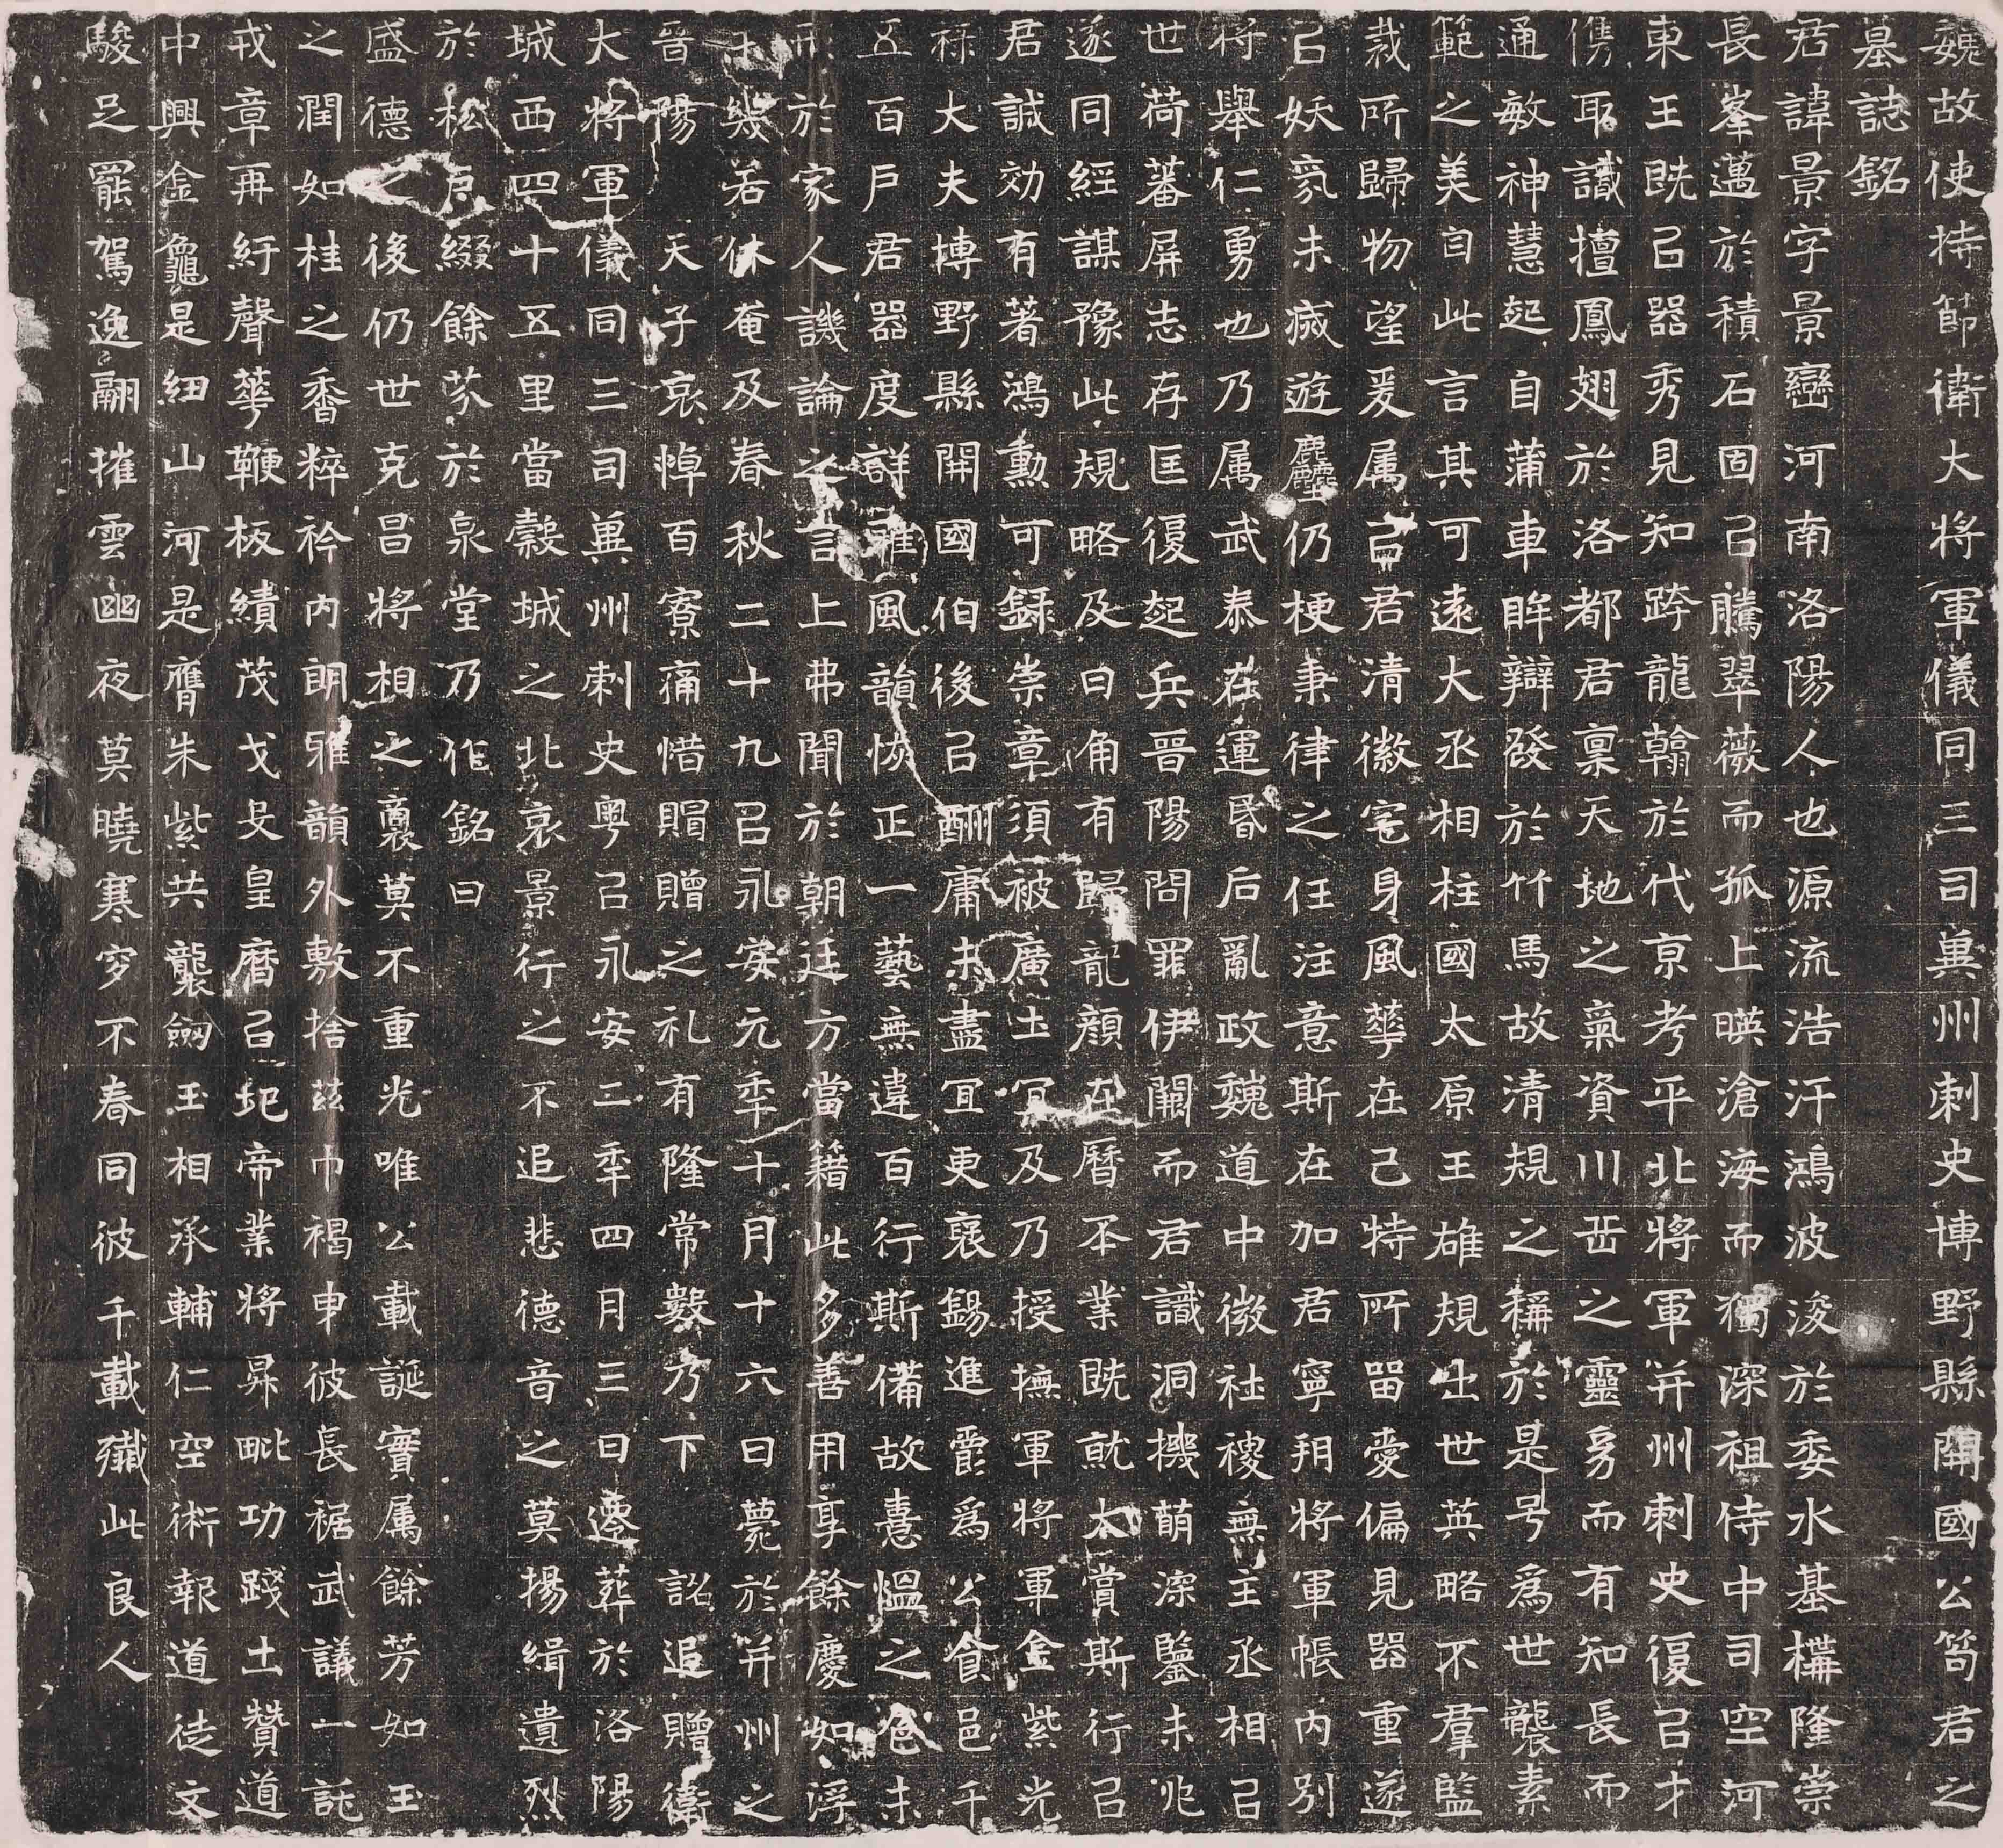 魏故使持節衛大將軍儀同三司兾州刺史博野縣開國公笱君之
墓誌銘
君諱景字景巒河南洛陽人也源流浩汗鴻波浚於委水基構隆崇
長峯邁於積石固㠯騰翠薇而孤上暎滄海而獨深祖侍中司空河
東王既㠯器秀見知跨龍翰於代京考平北將軍并州刺史復㠯才
儁取識擅鳳翅於洛都君稟天地之氣資川岳之靈㓜而有知長而
通敏神慧起自蒲車眸辯發於竹馬故清規之稱於是号爲世襲素
範之美自此言其可遠大丞相柱國太原王雄規出世英略不羣監
裁所歸物望爰属㠯君清徽宅身風華在己特所留愛偏見器重遂
㠯妖氛未滅遊麤仍梗秉律之任注意斯在加君寧朔將軍帳內別
將舉仁勇也乃属武泰在運昏后亂政魏道中微社禝無主丞相㠯
世荷蕃屏志存匡復起兵晋陽問罪伊闕而君識洞機萌深鑒未兆
遂同經謀豫此規略及日角有歸龍顔在曆丕業既就大賞斯行㠯
君誠効有著鴻勳可録崇章須被廣土冝及乃授撫軍將軍金紫光
祿大夫博野縣開國伯後㠯酬庸未盡冝更襃錫進爵爲公食邑千
五百户君器度詳雅風韻恢正一藝無違百行斯備故憙慍之色未
形於家人譏論之言上弗聞於朝廷方當籍此多善用享餘慶如浮
幾若休奄及春秋二十九㠯永安元秊十月十六日薨於并州之
晉陽天子哀悼百寮痛惜賵贈之礼有隆常數乃下詔追贈衛
大將軍儀同三司兾州刺史粤㠯永安二秊四月三日遷葬於洛陽
城西四十五里當穀城之北哀景行之不追悲德音之莫揚緝遺烈
於松戸綴餘芬於泉堂乃作銘曰
盛德之後仍世克昌將相之裔莫不重光唯公載誕實属餘芳如玉
之潤如桂之香粹衿内朗雅韻外敷捨茲巾褐申彼長裾武議一託
戎章再紆聲華鞭板績茂戈殳皇曆㠯圯帝業將昇毗功踐土贊道
中興金龜是紐山河是膺朱紫共襲劒玉相承輔仁空術報道徒文
駿足罷駕逸翮摧雲幽夜莫曉寒穸不春同彼千載殲此良人